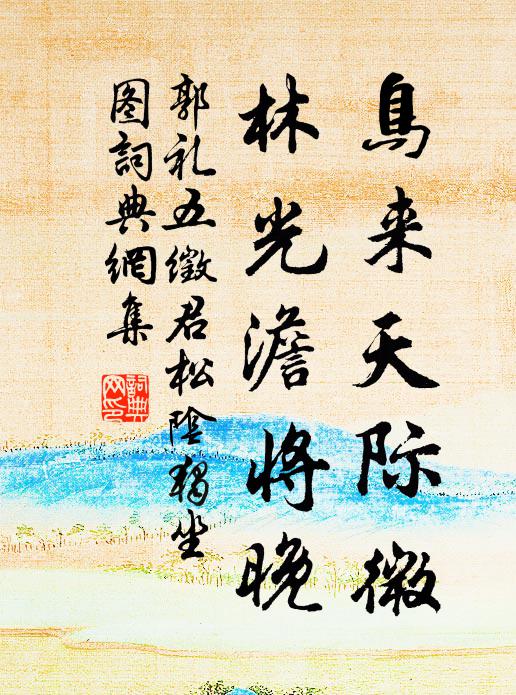 鳥来天际微
林光澹将晚
郭礼五徵君松陰獨坐
图詞典網集
詞典
网印